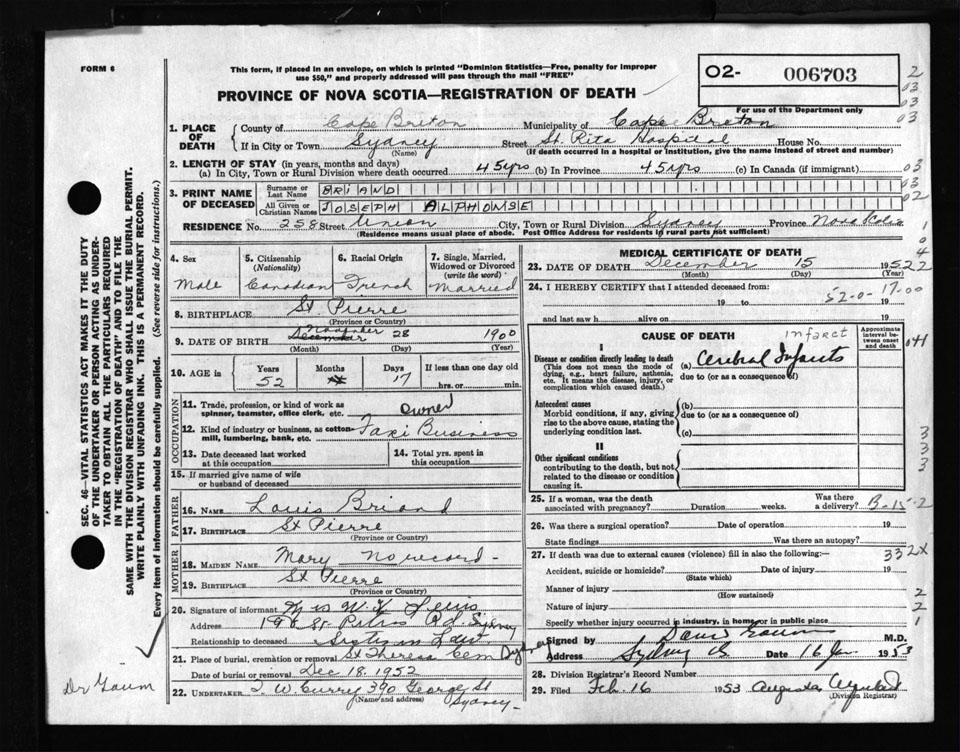 FORM 6
This form, if placed in an envelope, on which is printed "Dominion Statistics—Free, penalty for improper
use $50," and properly addressed will pass through the mail "FREE"
PROVINCE OF NOVA SCOTIA—REGISTRATION OF DEATH
02- 006703
For use of the Department only
1. PLACE OF DEATH
County of Cape Breton Municipality of Cape Breton
If in City or Town Sydney Street St. Rita Hospital House No.
(Name) (If death occurred in a hospital or institution, give the name instead of street and number)
2. LENGTH OF STAY (in years, months and days)
(a) In City, Town or Rural Division where death occurred 45 yrs (b) In Province 45 yrs (c) In Canada (if immigrant)
3. PRINT NAME OF DECEASED
Surname or Last Name BRIAND
All Given or Christian Names JOSEPH ALPHONSE
RESIDENCE No. 258 Street Union City, Town or Rural Division Sydney Province Nova Scotia
(Residence means usual place of abode. Post Office Address for residents in rural parts not sufficient)
4. Sex
Male
5. Citizenship
(Nationality)
Canadian
6. Racial Origin
French
7. Single, Married,
Widowed or Divorced
(write the word)
Married
8. BIRTHPLACE St. Pierre
(Province or Country)
9. DATE OF BIRTH December November 28 1900
(Month) (Day) (Year)
10. AGE in
Years Months Days If less than one day old
52 17 hrs. or min.
OCCUPATION
11. Trade, profession, or kind of work as
spinner, teamster, office clerk, etc. owner
12. Kind of industry or business, as cotton-
mill, lumbering, bank, etc. Taxi Business
13. Date deceased last worked
at this occupation
14. Total yrs. spent in
this occupation
15. If married give name of wife
or husband of deceased
FATHER
16. NAME Louis Briand
17. BIRTHPLACE St Pierre
(Province or Country)
MOTHER
18. MAIDEN NAME Mary No record -
19. BIRTHPLACE St Pierre
(Province or Country)
20. Signature of informant Mrs W.
Address Sydney
Relationship to deceased Sister in Law
21. Place of burial, cremation or removal St Theresa Cem Sydney
Date of burial or removal Dec 18. 1952
22. UNDERTAKER T. W. Curry 390 George St
(Name and address) Sydney -
MEDICAL CERTIFICATE OF DEATH
23. DATE OF DEATH December 15 1952
(Month) (Day)
24. I HEREBY CERTIFY that I attended deceased from:
19 to 19
52-0-17-00
and last saw h alive on 19
CAUSE OF DEATH
Infarct
Approximate
interval be-
tween onset
and death
I
Disease or condition directly leading to death
(This does not mean the mode of
dying, e.g., heart failure, asthenia,
etc. It means the disease, injury, or
complication which caused death.)
(a) Cerebral Infarcts
due to (or as a consequence of)
Antecedent causes
Morbid conditions, if any, giving
rise to the above cause, stating the
underlying condition last.
(b)
due to (or as a consequence of)
(c)
II
Other significant conditions
contributing to the death, but not
related to the disease or condition
causing it.
25. If a woman, was the death
associated with pregnancy? Duration weeks. Was there a delivery?
B-15-2
26. Was there a surgical operation? Date of operation 19
State findings Was there an autopsy?
332X
27. If death was due to external causes (violence) fill in also the following:—
Accident, suicide or homicide? Date of injury 19
(State which)
Manner of injury
(How sustained)
Nature of injury
Specify whether injury occurred in industry, in home, or in public place
Signed by M.D.
Address Sydney NS Date 16 Jan 1953
28. Division Registrar's Record Number
29. Filed Feb. 16 1953
(Division Registrar)
SEC. 46—VITAL STATISTICS ACT MAKES IT THE DUTY
OF THE UNDERTAKER OR PERSON ACTING AS UNDER-
TAKER TO OBTAIN ALL THE PARTICULARS REQUIRED
IN THE "REGISTRATION OF DEATH" AND TO FILE THE
SAME WITH THE DIVISION REGISTRAR WHO SHALL ISSUE THE BURIAL PERMIT.
WRITE PLAINLY WITH UNFADING INK. THIS IS A PERMANENT RECORD.
Every item of information should be carefully supplied. (See reverse side for instructions.)
Dr Gaum
2
03
03
03
03
02
041
3
3
3
2
2
1